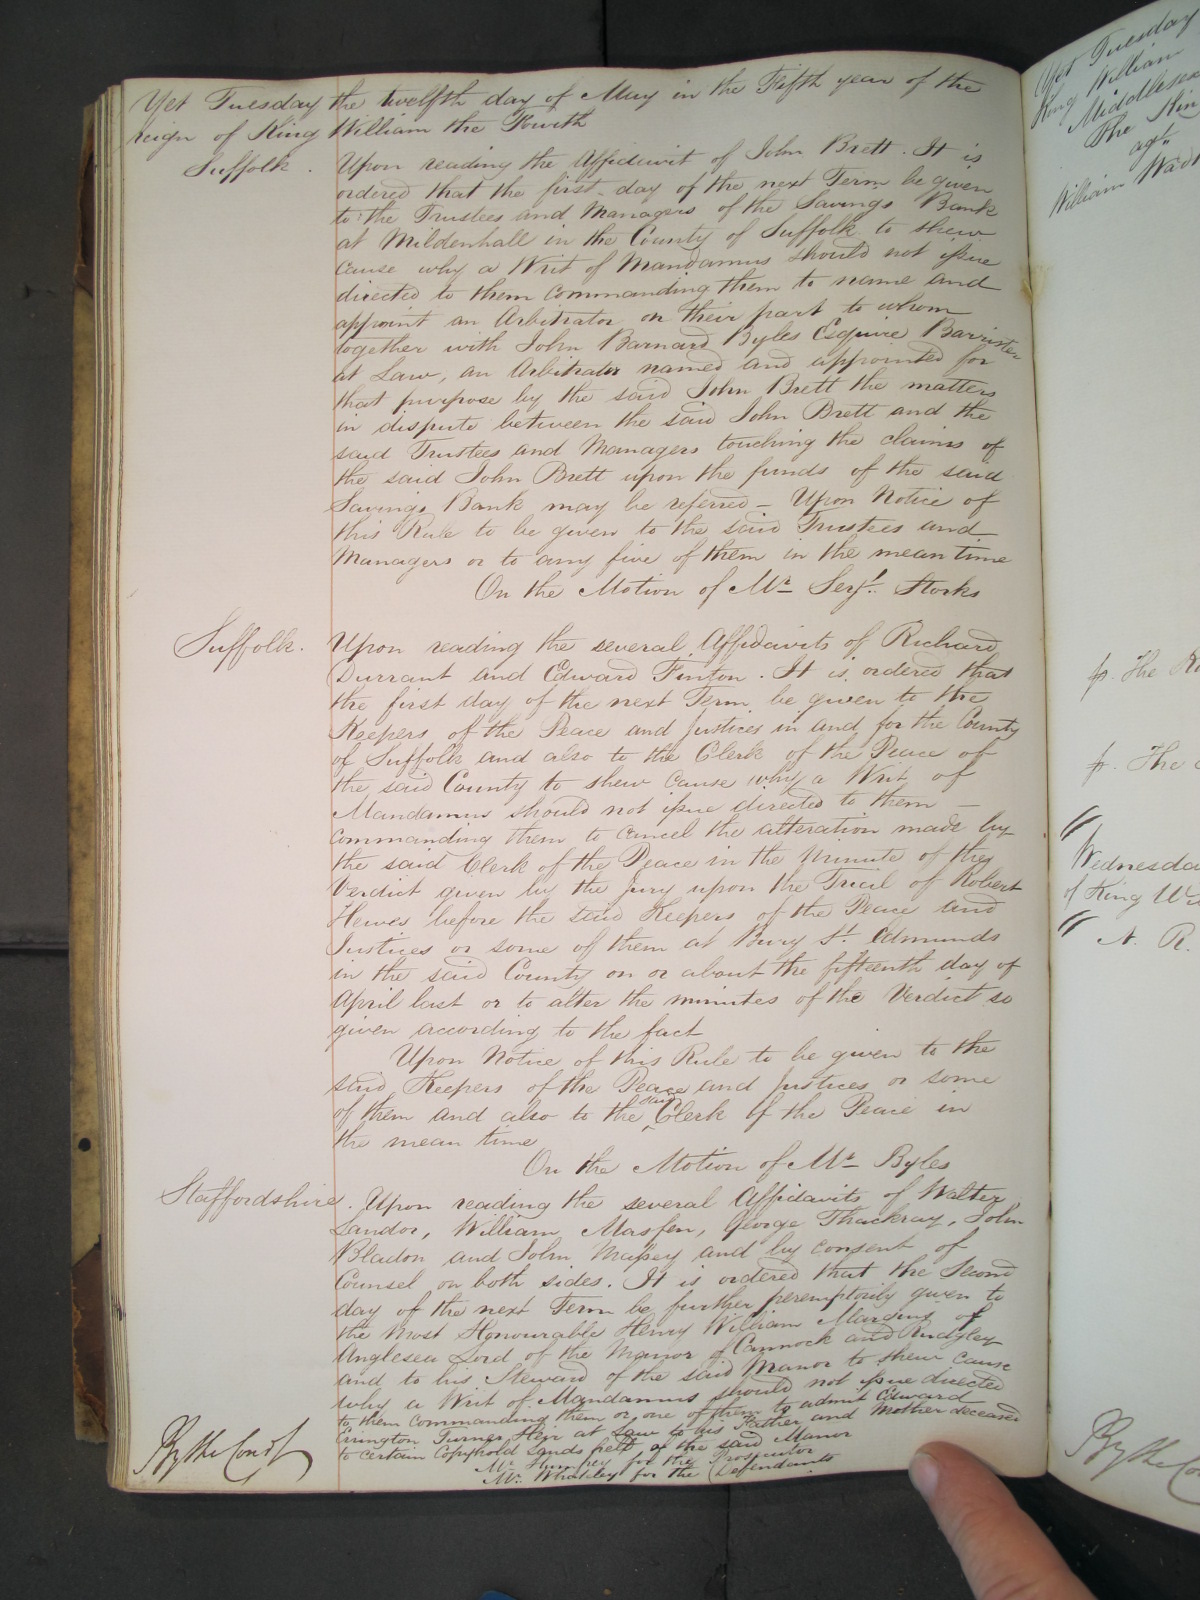 Yet Tuesday the twelfth day of May in the Fifth year of the
reign of King William the Fourth
Suffolk.
Upon reading the Affidavit of John Brett. It is
ordered that the first day of the next Term be given
to the Trustees and Managers of the Savings Bank
at Mildenhall in the County of Suffolk to shew
cause why a Writ of Mandamus should not issue
directed to them commanding them to name and
appoint an Arbitrator on their part to whom
together with John Barnard Byles Esquire Barrister
at Law, an Arbitrator named and appointed for
that purpose by the said John Brett the matters
in dispute between the said John Brett and the
said Trustees and Managers touching the claims of
the said John Brett upon the funds of the said
Savings Bank may be referred – Upon Notice of
this Rule to be given to the said Trustees and
Managers or to any five of them in the mean time
On the Motion of Mr. Serjt. Storks
Suffolk.
Upon reading the several Affidavits of Richard
Durrant and Edward Finton. It is ordered that
the first day of the next Term be given to the
Keepers of the Peace and Justices in and for the County
of Suffolk and also to the Clerk of the Peace of
the said County to shew cause why a Writ of
Mandamus should not issue directed to them –
commanding them to cancel the alteration made by
the said Clerk of the Peace in the minute of the
Verdict given by the Jury upon the Trial of Robert
Hewes before the said Keepers of the Peace and
Justices or some of them at Bury St. Edmunds
in the said County on or about the fifteenth day of
April last or to alter the minutes of the Verdict so
given according to the fact
Upon Notice of this Rule to be given to the
said Keepers of the Peace and Justices or some
of them and also to the said Clerk of the Peace in
the mean time
On the Motion of Mr. Byles
Staffordshire.
Upon reading the several Affidavits of Walter
Landor, William Masfen, George Thackray, John
Bladon and John Massey and by consent of
Counsel on both sides. It is ordered that the Second
day of the next Term be further peremptorily given to
the Most Honourable Henry William Marquis of
Anglesea Lord of the Manor of Cannock and Rudgley
and to his Steward of the said Manor to shew cause
why a Writ of Mandamus should not issue directed
to them commanding them or one of them to admit Edward
Errington Turner Heir at Law to his Father and Mother deceased
to certain Copyhold Lands held of the said Manor
Mr. Humfrey for the Prosecutor
Mr. Whateley for the Defendants
By the Court
Yet Tuesday
King William
Middlesex
The Kin
agt.
William
p. The
p. The
Wednesda
of King Wi
N. R.
By the Co